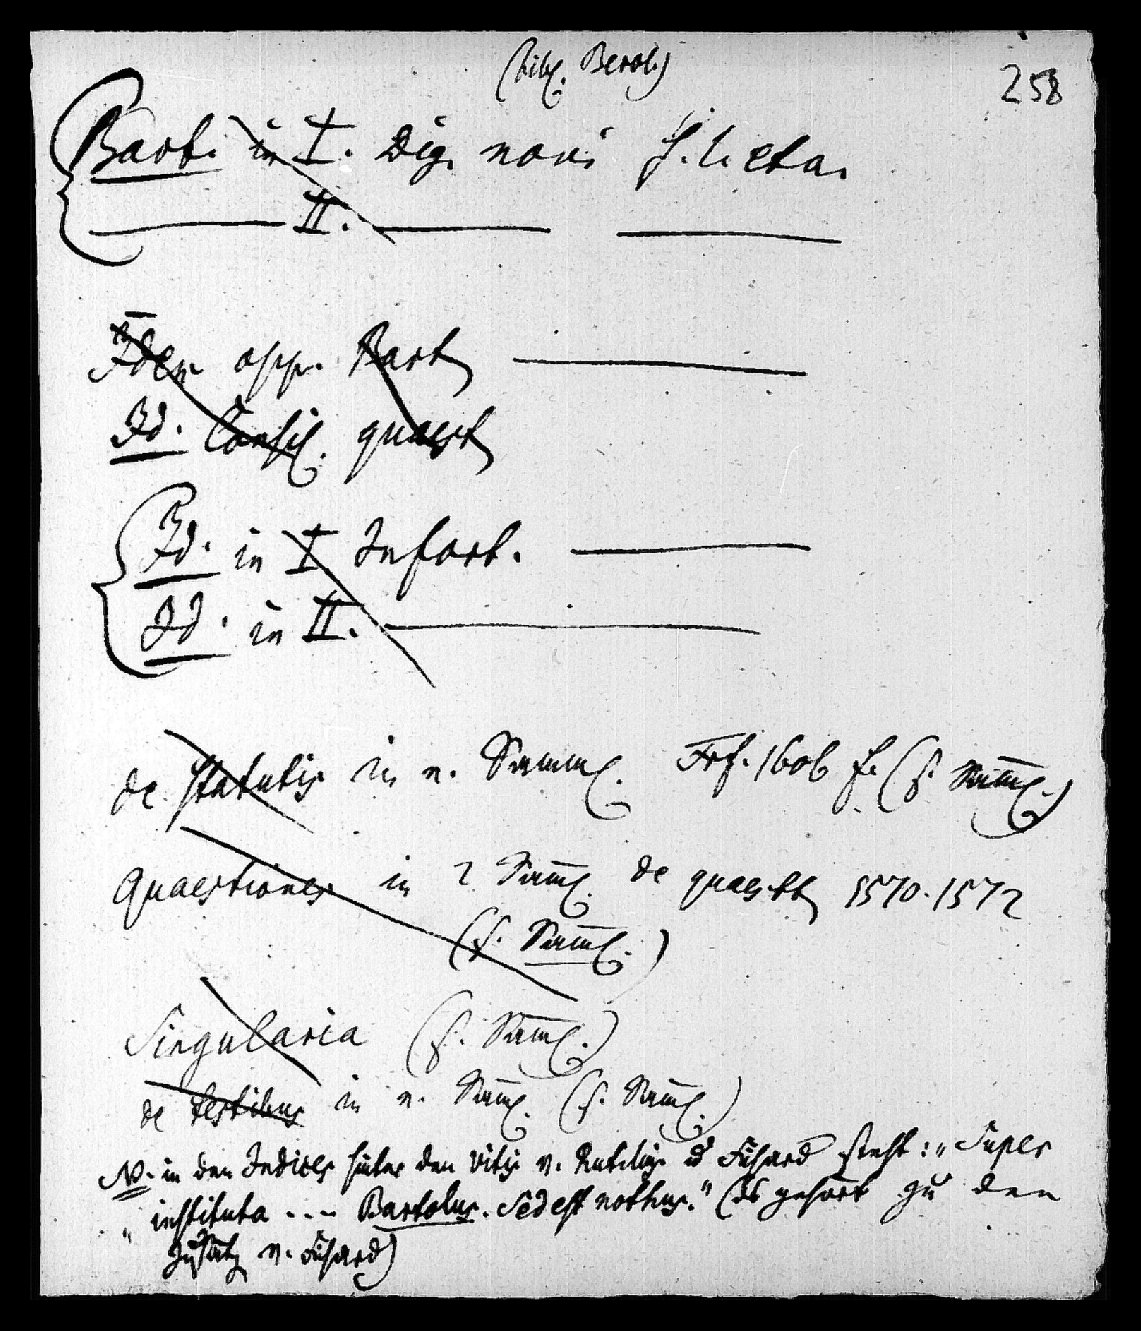 (bibl. Berol.)
258
Bart. in I. Dig. novi s. l. et a.
II.
Idem opp. Bart
Id. Consil. quaest
Id. in I Infort.
Id. in II.
de statutis in e. Samml. Frf. 1606 f. (s. Samml.)
Quaestiones in 2 Samml. de quaestt 1570. 1572
(s. Samml.)
Singularia (s. Samml.)
de testibus in e. Samml. (s. Samml.)
NB. in den Indices hinter den Vitis v. Rutilius u Fichard steht: „Super
„ instituta ... Bartolus. Sed est nothus." (ds gehört zu den
Zusätz v. Fichard)